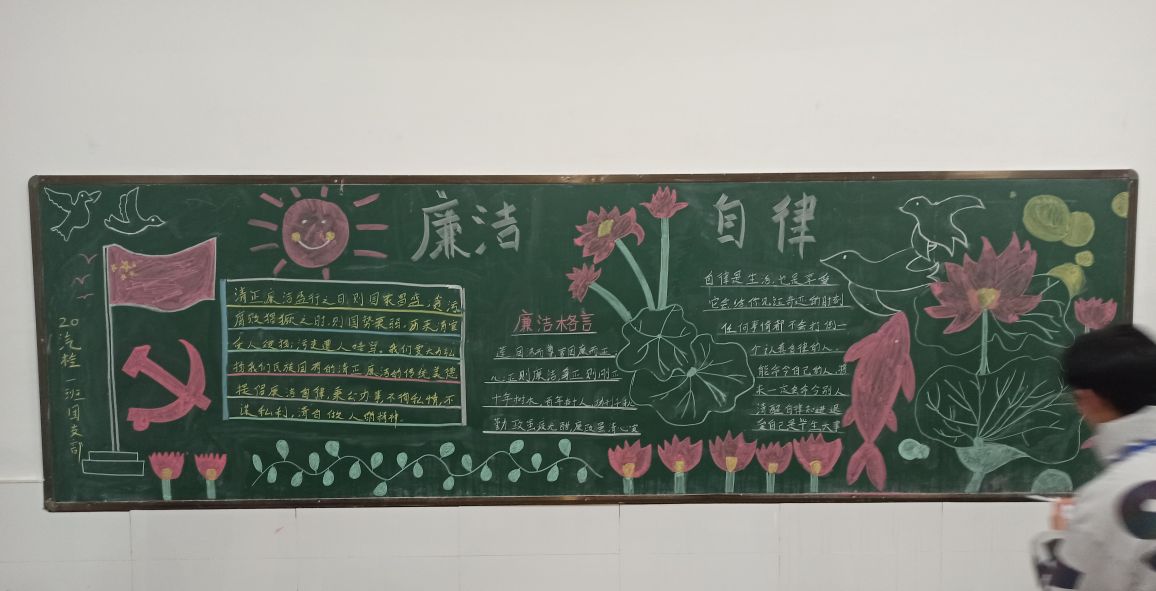 廉洁 自律
20汽检一班团支部
清正廉洁盛行之日,则国家昌盛,贪污
腐败猖獗之时,则国势衰弱,历来清官
令人经扬,污吏遭人唾骂,我们要大力弘
扬我们民族固有的清正廉洁的传统美德
提倡廉洁自律,秉公办事不徇私情,不
谋私利,清白做人的精神。
廉洁格言
莲因洁而尊官因廉而正
心正则廉洁身正则刚正
十年树木,百年树人,
勤政
自律是生活,也是享受
它会给你见证奇迹的时刻
任何事情都不会打倒一
个认真自律的人。
能命令自己的人
来一定命令别人
清醒自律知进退
爱自己是毕生大事